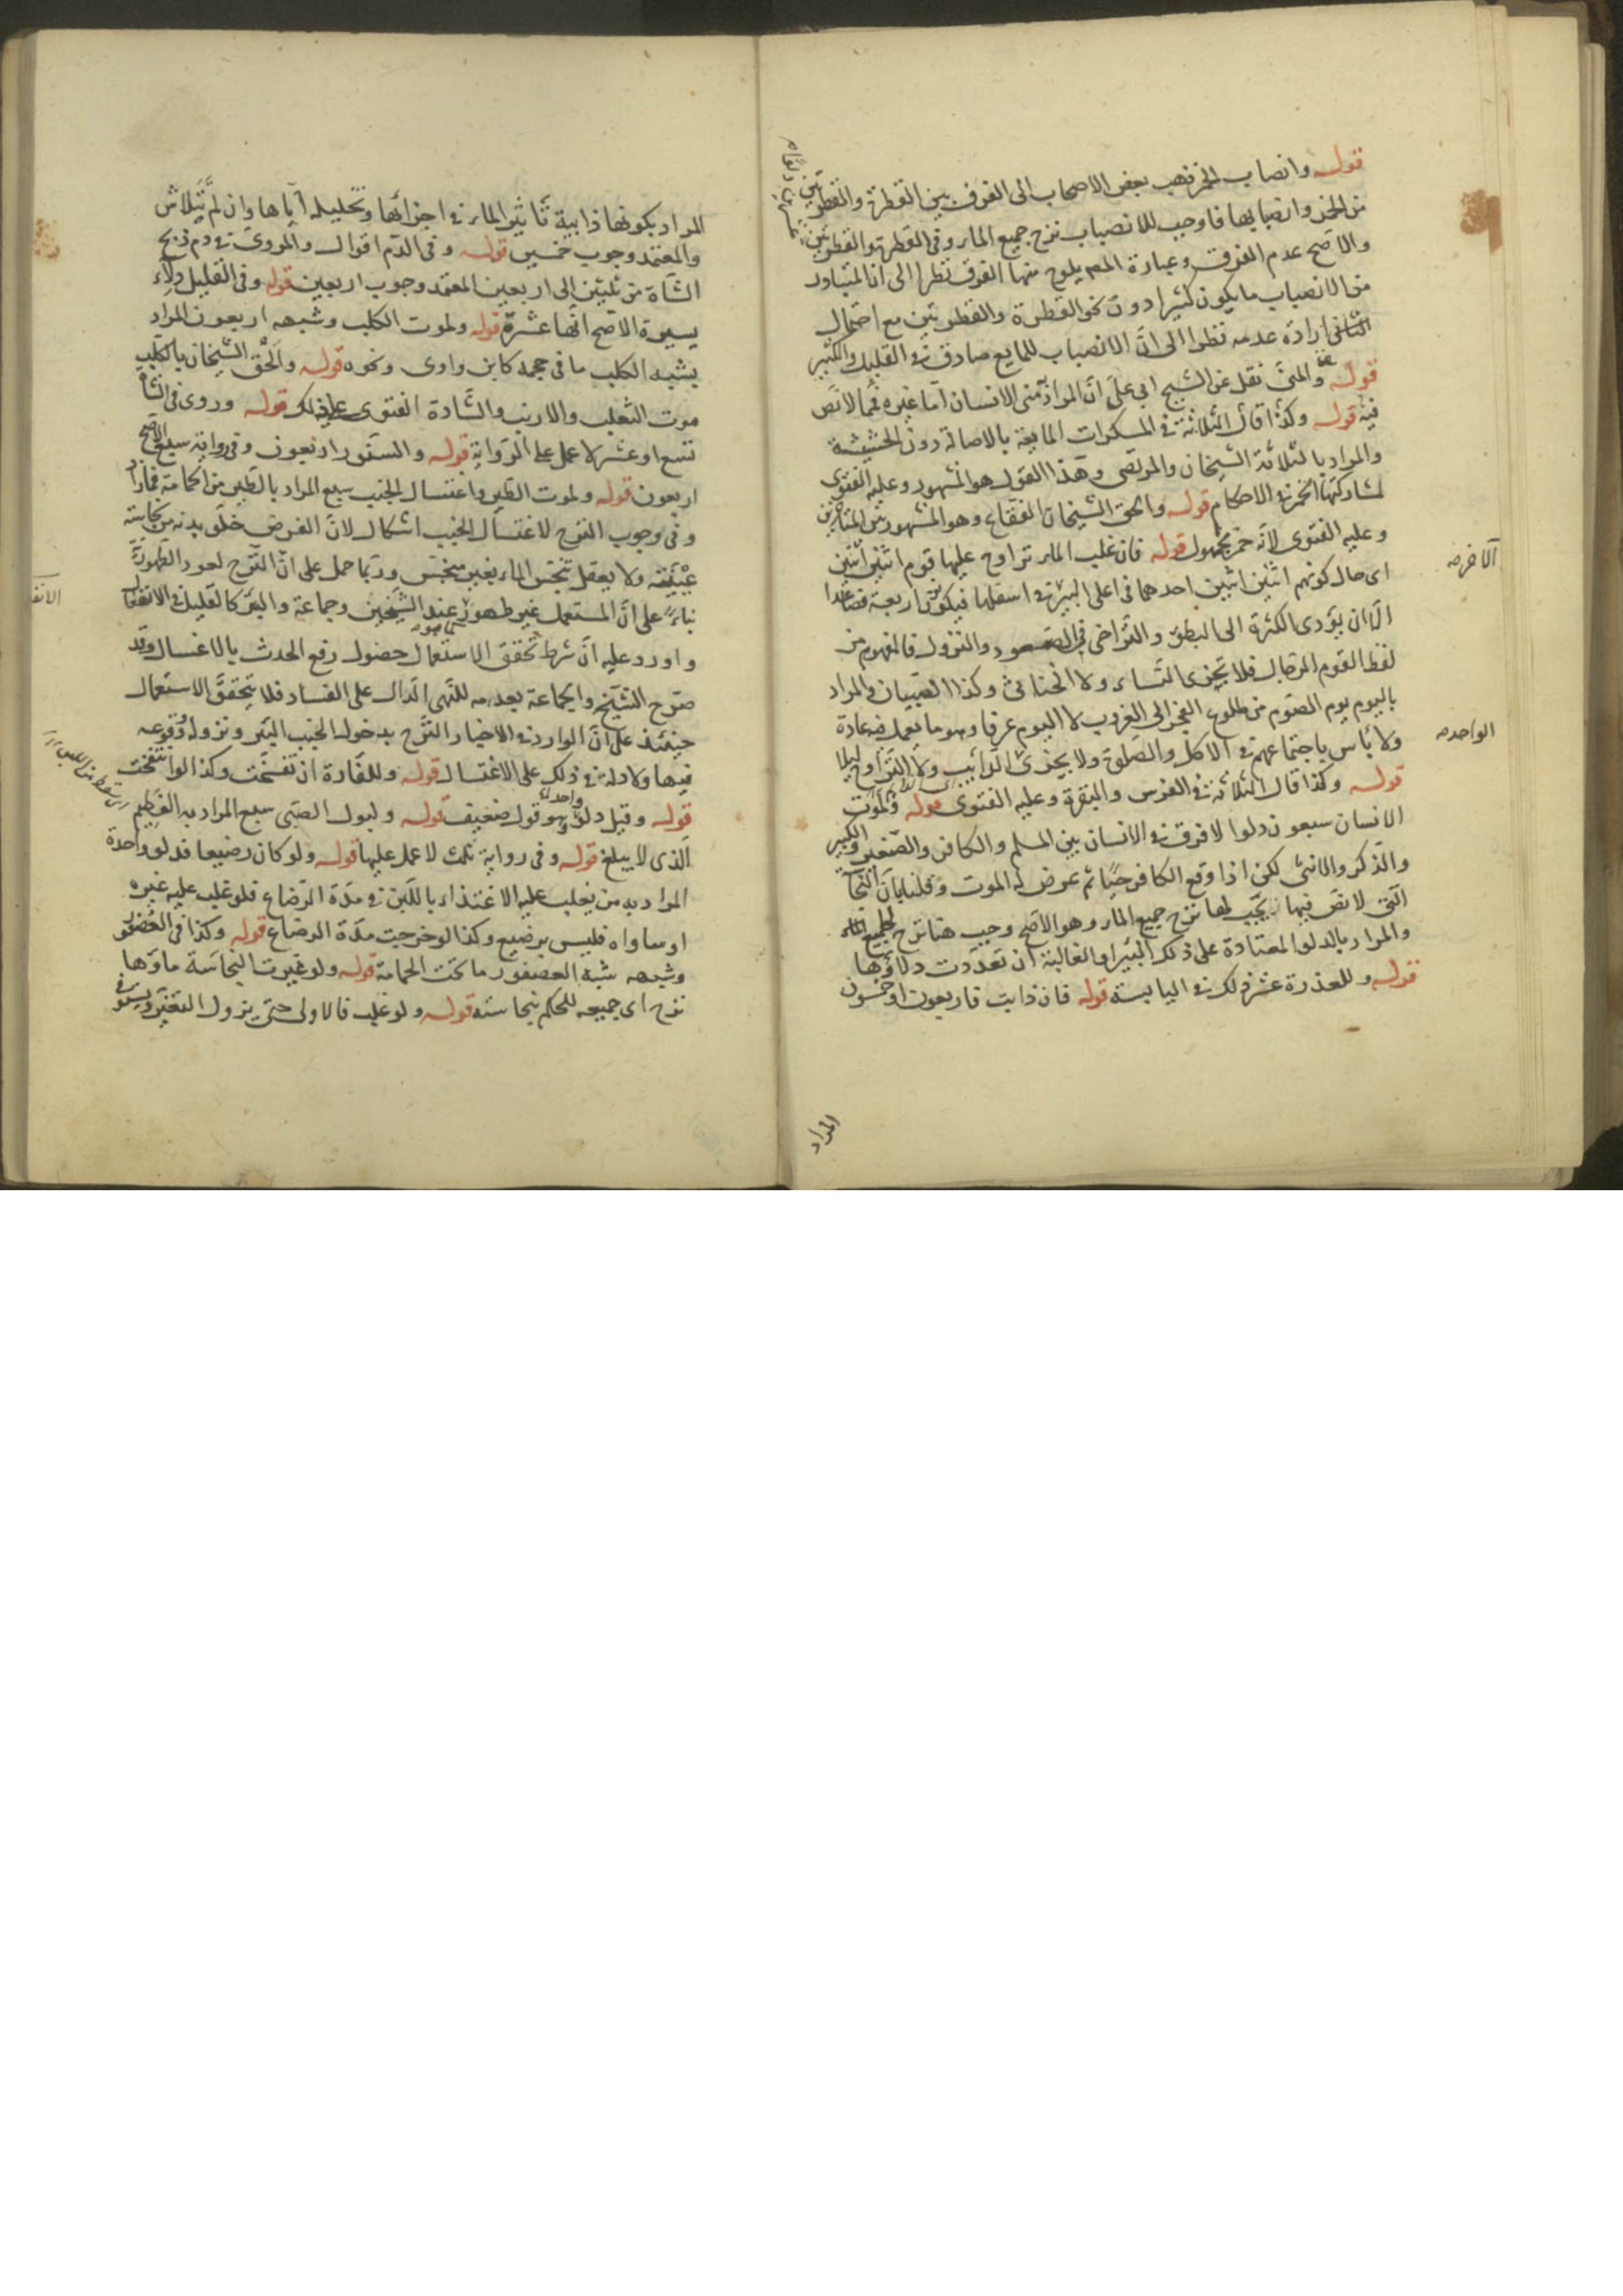 قوله وانصاب الخمر ذهب بعض الاصحاب الى الفرق بين القطرة والقطرتين
من الخمر وانصبابها فاوجب للانصباب نزح جميع الماء وفى القطرة والقطرتين عشرين دلوا
والاصح عدم الفرق وعبارة المص يلوح منها الفرق نظرا الى ان المتبادر
من الانصباب ما يكون كثيرا دون نحو القطرة والقطرتين مع احتمال
الثانى ارادة عدمه نظرا الى ان الانصباب للمايع صادق فى القليل والكثير
قوله والمنى نقل عن الشيخ ابى على ان المراد منى الانسان اما غيره فمما لا نص
فيه قوله وكذا قال الثلاثة فى المسكرات المايعة بالاصالة دون الحشيشة
والمراد بالثلاثة الشيخان والمرتضى وهذا القول هو المشهور وعليه الفتوى
لمشاركتها الخمر فى الاحكام قوله والحق الشيخان الفقاع وهو المشهور بين المتاخرين
وعليه الفتوى لانه خمر مجهول قوله فان غلب الماء تراوح عليها قوم اثنين اثنين
اى حال كونهم اثنين اثنين احدهما فى اعلى البئر فى اسفلها فيكون اربعة فصاعدا
الا ان يؤدى الكثرة الى البطؤ والتراخى فى الصعود والنزول فالمفهوم من
لفظ القوم الرجال فلا يجزى النساء ولا الخناثى وكذا الصبيان والمراد
باليوم يوم الصوم من طلوع الفجر الى الغروب لا اليوم عرفا وهو ما يعمل فيه عادة
ولا بأس باجتماعهم فى الاكل والصلوة ولا يجزى الدائبين ولا التراوح ليلا
قوله وكذا قال الثلاثة فى الفرس والبقرة وعليه الفتوى قوله ولموت
الانسان سبعون دلوا لا فرق فى الانسان بين المسلم والكافر والصغير والكبير
والذكر والانثى لكن اذا وقع الكافر حيا ثم عرض له الموت وقلنا بان النجاسة
التى لا نص فيها يجب لها نزح جميع الماء وهو الاصح وجب هنا نزح الجميع
والمراد بالدلو المعتادة على ذلك البئر او الغالبة ان تعددت دلاؤها
قوله وللعذرة عشر ذلك فى اليابسة قوله فان ذابت فاربعون او خمسون
الآخر صه
الواحد صه
المراد
المراد بكونها ذابية تأثير الماء فى اجزائها وتحليله اياها وان لم يتلاش
والمعتمد وجوب خمسين قوله وفى الدم اقوال والمروى فى دم ذبح
الشاة من ثلثين الى اربعين المعتمد وجوب اربعين قوله وفى القليل دلاء
يسيرة الاصح انها عشرة قوله ولموت الكلب وشبهه اربعون المراد
بشبه الكلب ما فى حجمه كابن واوى ونحوه قوله والحق الشيخان بالكلب
موت الثعلب والارنب والشاة الفتوى على ذلك قوله وروى فى الشاة
تسع او عشر لا عمل على الرواية قوله والسنور اربعون وفى رواية سبع الاصح
اربعون قوله ولموت الطير واغتسال الجنب سبع المراد بالطير من الحمامة فمازاد
وفى وجوب النزح لاغتسال الجنب اشكال لان الفرض خلو بدنه من نجاسة
عينية ولا يعقل تنجس الماء بغير منجس وربما حمل على ان النزح لعود الطهورية
بناء على ان المستعمل غير طهور عند الشيخين وجماعة والبئر كالقليل فى الانفعال
واورد عليه ان شرط تحقق الاستعمال حصول رفع الحدث بالاغتسال وقد
صرح الشيخ والجماعة بعدمه للنهى الدال على الفساد فلا يتحقق الاستعمال
حينئذ على ان الوارد فى الاخبار النزح بدخول الجنب البئر ونزوله ووقوعه
فيها ولا دلالة فى ذلك على الاغتسال قوله وللفارة ان تفسخت وكذا لو انتفخت
قوله وقيل دلو واحد وهو قول ضعيف قوله ولبول الصبى سبع المراد به الفطيم
الذى لا يبلغ قوله وفى رواية ثلث لا عمل عليها قوله ولو كان رضيعا فدلو واحدة
المراد به من يغلب عليه الاغتذاء باللبن فى مدة الرضاع فلو غلب عليه غيره
او ساواه فليس برضيع وكذا لو خرجت مدة الرضاع قوله وكذا فى العصفور
وشبهه شبه العصفور ما تحت الحمامة قوله ولو غيرت النجاسة ماؤها
نزح اى جميعه للحكم بنجاسته قوله ولو غلب فالاولى حتى يزول التغير ويستوفى